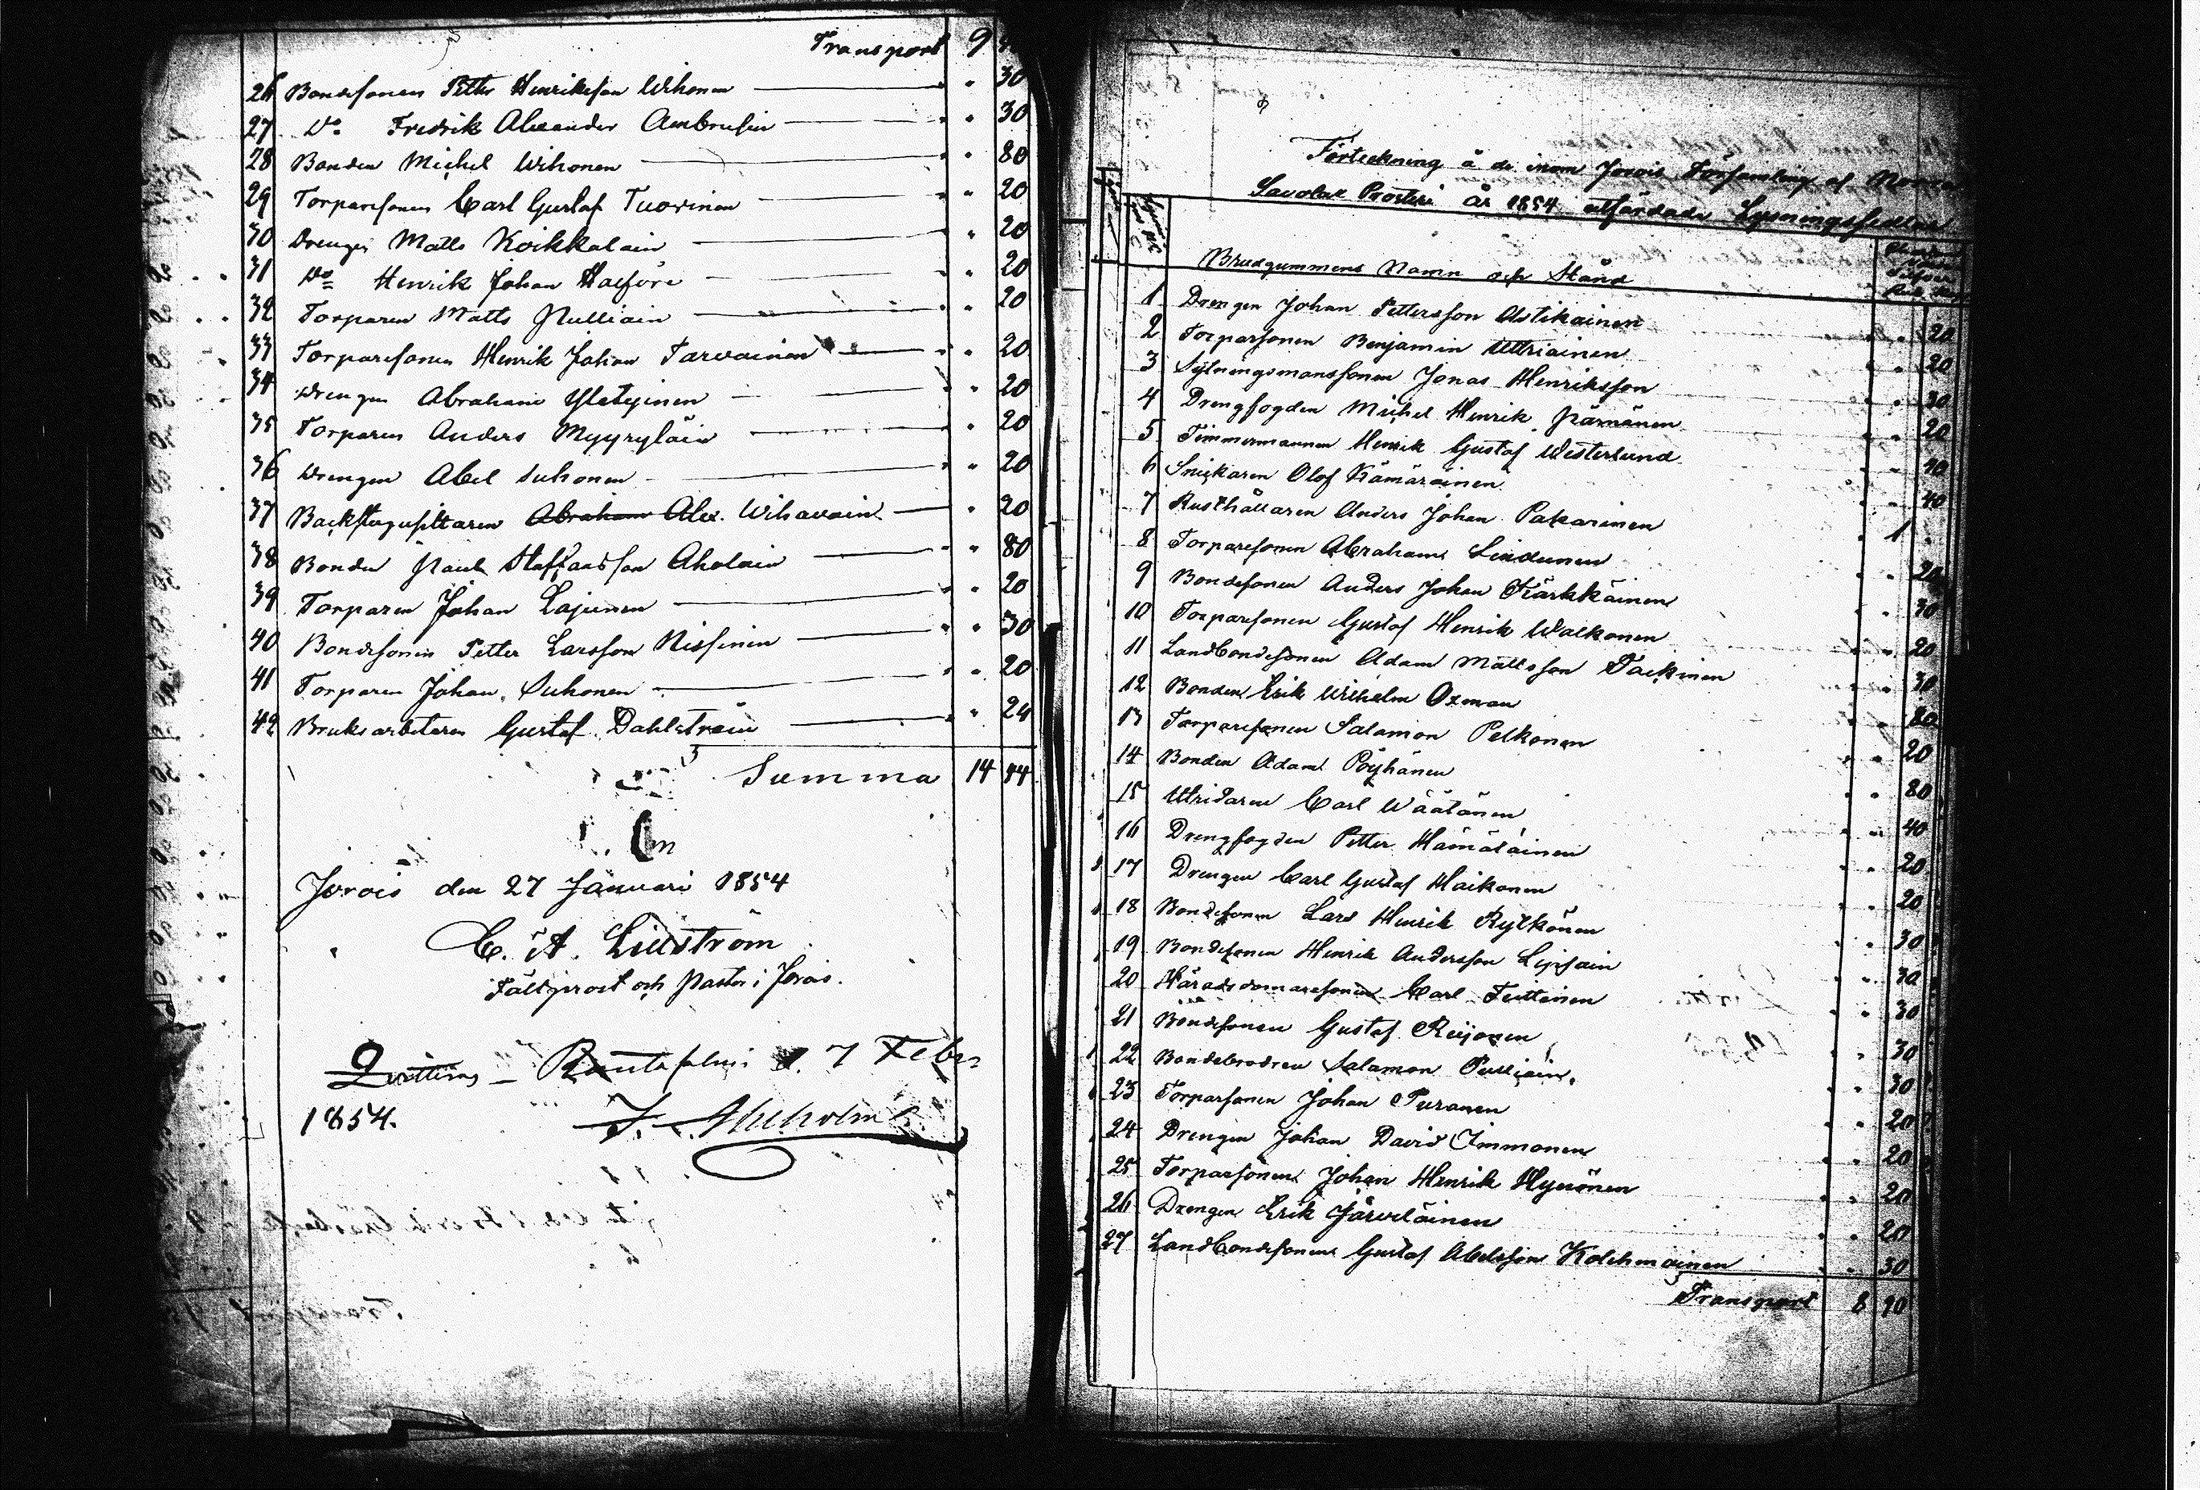 Transport 9
26 Bondesonen Petter Henriksson Wihonen " 30
27 Do Fredrik Alexander Ambrusin " 30
28 Bonden Michel Wihonen " 80
29 Torparesonen Carl Gustaf Tuovinen " 20
30 Drengen Matts Koikkalain " 20
31 Do Henrik Johan Halfors " 20
32 Torparen Matts Pulliain " 20
33 Torparesonen Henrik Johan Tarvainen " 20
34 Drengen Abraham Yletyinen " 20
35 Torparen Anders Myyryläin " 20
36 Drengen Abel Suhonen " 20
37 Backstugusittaren Abraham Alex. Wihavain " 20
38 Bonden Paul Staffansson Aholain " 80
39 Torparen Johan Lajunen " 20
40 Bondesonen Petter Larsson Nissinen " 30
41 Torparen Johan Suhonen " 20
42 Bruksarbetaren Gustaf Dahlström " 24
Summa 14 84
Jorois den 27 Januari 1854
C. A. Lillström
Fältprost och Pastor i Jorois.
Quitteras Rantasalmi d. 7 Febr
1854.
Förteckning å de inom Jorois Församling af Norra
Savolax Prosteri år 1854 utfärdade Lysningssedlar
Brudgummens Namn och Stånd
1 Drengen Johan Pettersson Astikainen " 20
2 Torparsonen Benjamin Uttriainen " 20
3 Sytningsmanssonen Jonas Henriksson " 30
4 Drengfogden Michel Henrik Pärnänen " 20
5 Timmermannen Henrik Gustaf Westerlund " 40
6 Snickaren Olof Kämäräinen " 40
7 Rusthållaren Anders Johan Pakarinen 1 "
8 Torparesonen Abraham Lindunen " 20
9 Bondesonen Anders Johan Kärkkäinen " 30
10 Torparesonen Gustaf Henrik Walkonen " 20
11 Landbondesonen Adam Mattsson Tackinen " 30
12 Bonden Erik Wilhelm Oxman " 80
13 Torparesonen Salamon Pelkonen " 20
14 Bonden Adam Pöyhänen " 80
15 Utridaren Carl Wäätänen " 40
16 Drengfogden Petter Hämäläinen " 20
17 Drengen Carl Gustaf Haikonen " 20
18 Bondesonen Lars Henrik Rytkönen " 30
19 Bondesonen Henrik Andersson Lipsain " 30
20 Häradsdomaresonen Carl Teittinen " 30
21 Bondesonen Gustaf Reijonen " 30
22 Bondebrodren Salamon Pulliain. " 30
23 Torparsonen Johan Turanen " 20
24 Drengen Johan David Immonen " 20
25 Torparsonen Johan Henrik Hyvönen " 20
26 Drengen Erik Järveläinen " 20
27 Landbondesonen Gustaf Abelsson Kolehmainen " 30
Transport 8 90